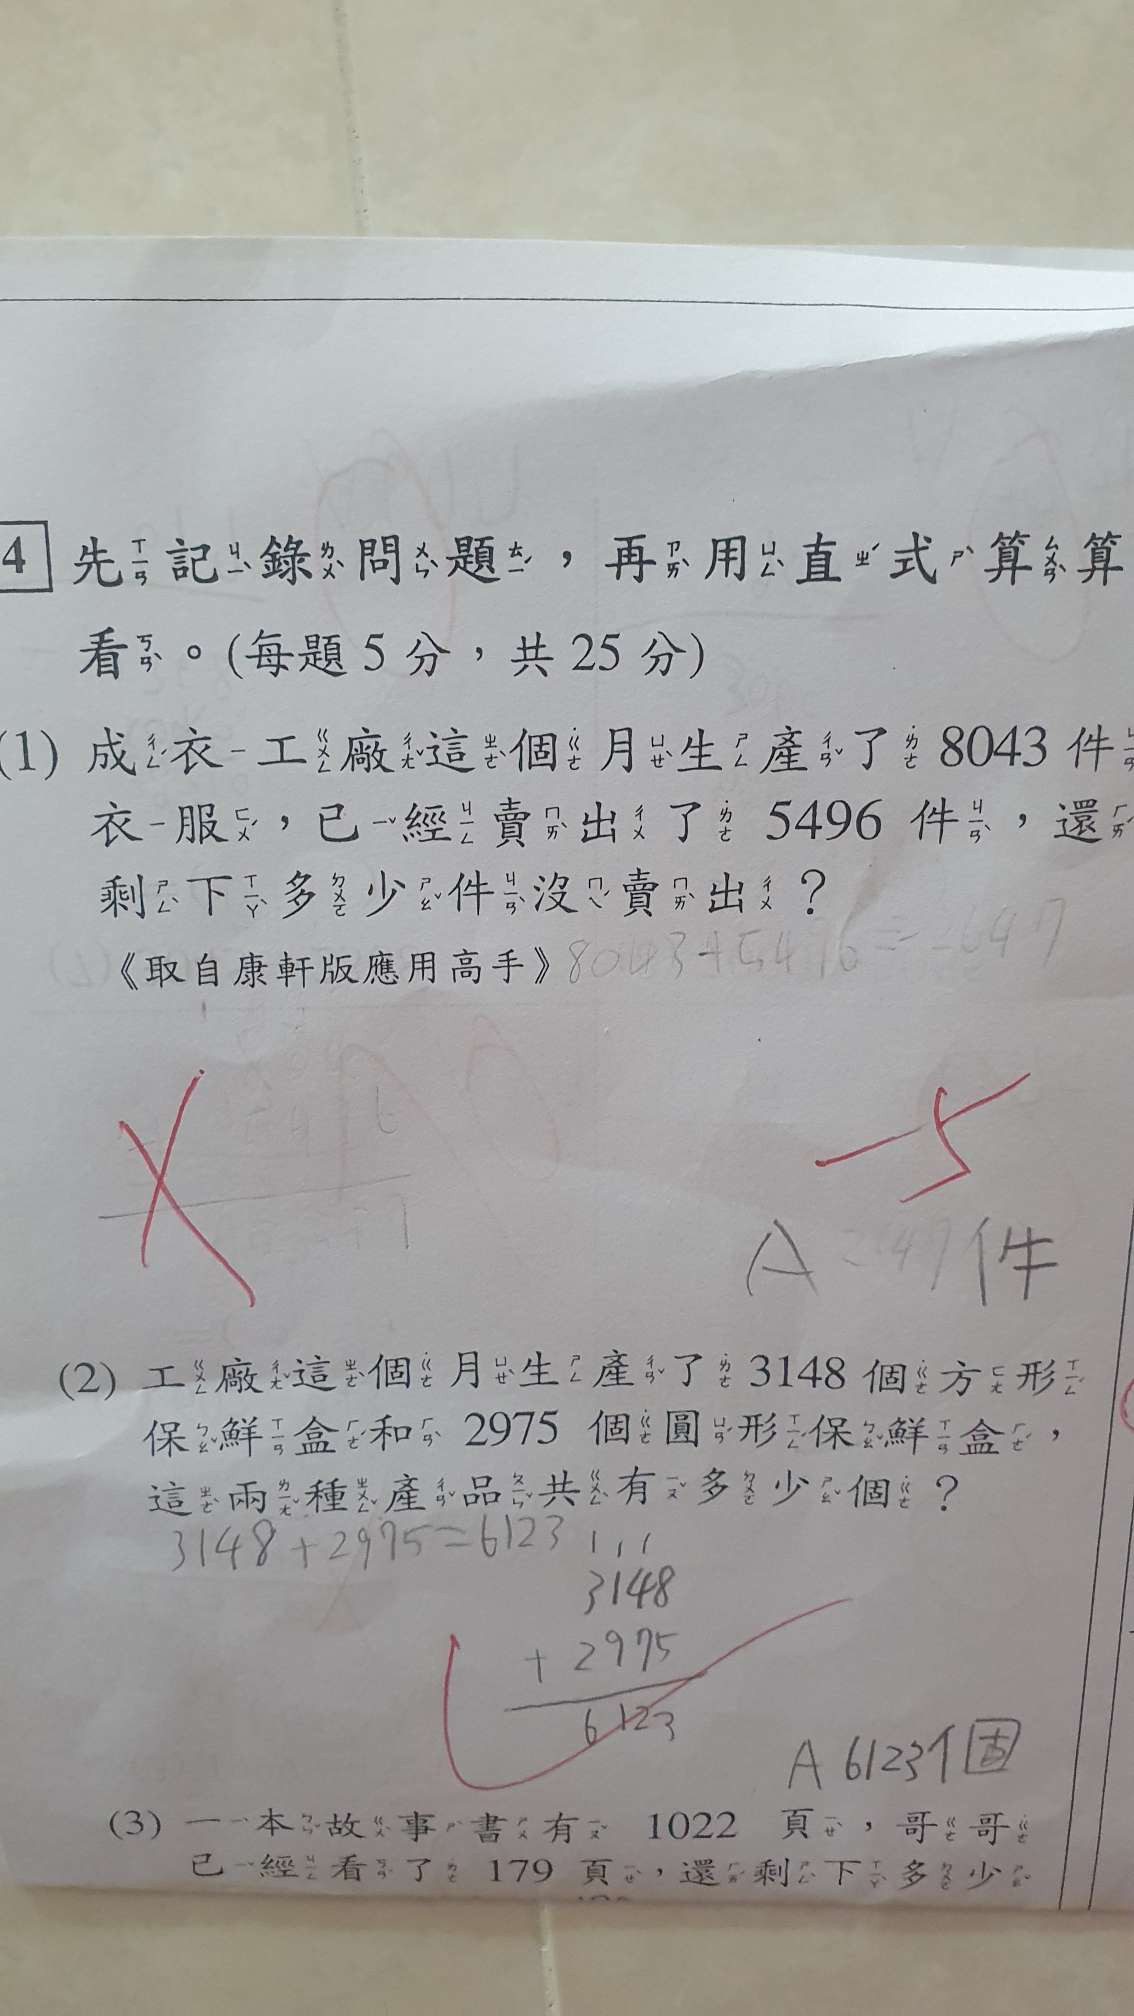 4 先記錄問題，再用直式算算
看。(每題 5 分，共 25 分)
(1) 成衣工廠這個月生產了 8043 件
衣服，已經賣出了 5496 件，還
剩下多少件沒賣出？
《取自康軒版應用高手》
-5
A 件
(2) 工廠這個月生產了 3148 個方形
保鮮盒和 2975 個圓形保鮮盒，
這兩種產品共有多少個？
3148+2975=6123
3148
+ 2975
6123
A 6123個
(3) 一本故事書有 1022 頁，哥哥
已經看了 179 頁，還剩下多少